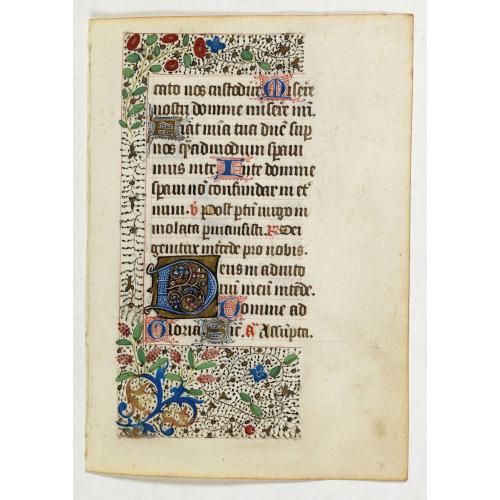 cato nos custodire Misere
nostri domine misere nri.
Fiat mia tua dne sup
nos qradmodum spaui
mus in te In te domine
speraui no confundar in et
num. v Post ptu uirgo in
uiolata pmansisti. R Dei
genitrix intcede pro nobis.
Deus in adiuto
riu meu intende.
Domine ad
Gloria Sic. A Assupta.